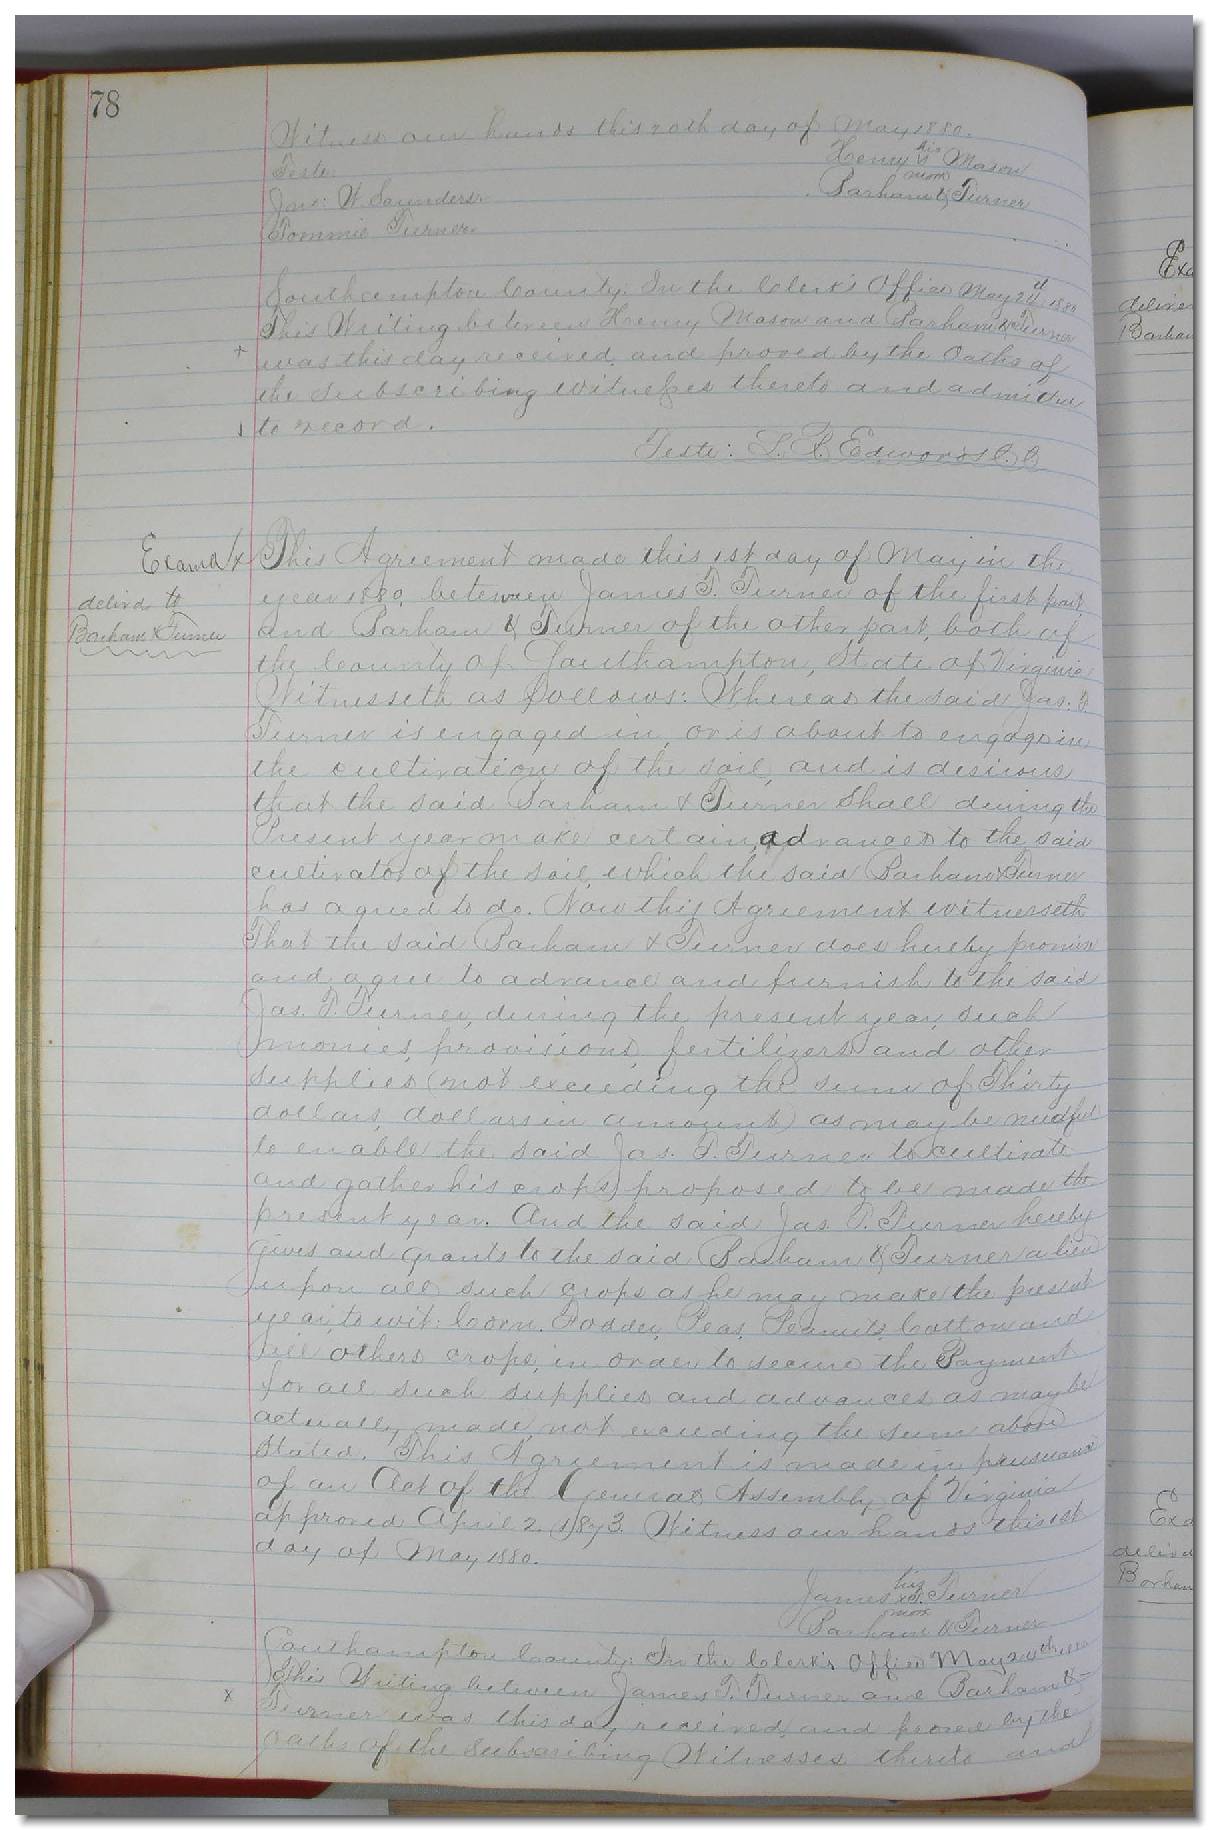 78
Witness our hands this 20th day of May 1880.
Teste.
Henry his x mark Mason
Jno: W Saunders
Parham & Turner
Tommie Turner
Southampton County: In the Clerk's Office May 24th 1880
This Writing between Henry Mason and Parham & Turner
was this day received and proved by the Oaths of
the Subscribing witnesses thereto and admitted
to record.
Teste: L. R. Edwards C. C
Examd x
delivd to
Parham & Turner
This Agreement made this 1st day of May in the
year 1880, between James T. Turner of the first part
and Parham & Turner of the other part, both of
the County of Southampton, State of Virginia
Witnesseth as follows: Whereas the said Jas. T.
Turner is engaged in, or is about to engage in
the cultivation of the soil, and is desirous
that the said Parham & Turner Shall during the
Present year make certain advances to the said
cultivator of the soil, which the said Parham & Turner
has agreed to do. Now this Agreement witnesseth
That the said Parham & Turner does hereby promise
and agree to advance and furnish to the said
Jas. T. Turner, during the present year, such
monies, provisions, fertilizers and other
supplies (not exceeding the sum of Thirty
dollars, dollars in amount) as may be needful
to enable the said Jas. T. Turner to cultivate
and gather his crops) proposed to be made the
present year. And the said Jas. T. Turner hereby
gives and grants to the said Parham & Turner a lien
upon all such crops as he may make the present
year, to wit: Corn. Fodder, Peas, Peanuts, Cotton and
all others crops, in order to secure the Payment
for all such supplies and advances as may be
actually made, not exceeding the sum above
Stated. This Agreement is made in pursuance
of an Act of the General Assembly of Virginia
approved April 2. 1873. Witness our hands this 1st
day of May 1880.
James his x mark T. Turner
Parham & Turner
Southampton County: In the Clerk's Office May 24th 1880
This Writing between James T. Turner and Parham &
x
Turner was this day received, and proved by the
oaths of the Subscribing Witnesses thereto and
Exa
deliver
Parham
Exa
delivd
Parham